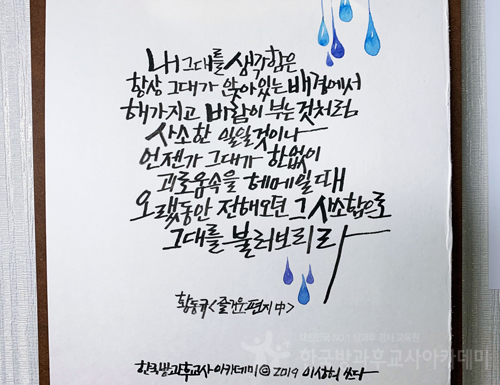 내 그대를 생각함은
항상 그대가 앉아있는 배경에서
해가지고 바람이 부는 것처럼
사소한 일일것이나
언젠가 그대가 한없이
괴로움속을 헤메일 때
오랫동안 전해오던 그 사소함으로
그대를 불러보리라
황동규 <즐거운 편지 中>
한국방과후교사아카데미 © 2019 이서희 쓰다
대한민국 NO.1 방과후 강사 교육원
한국방과후교사아카데미